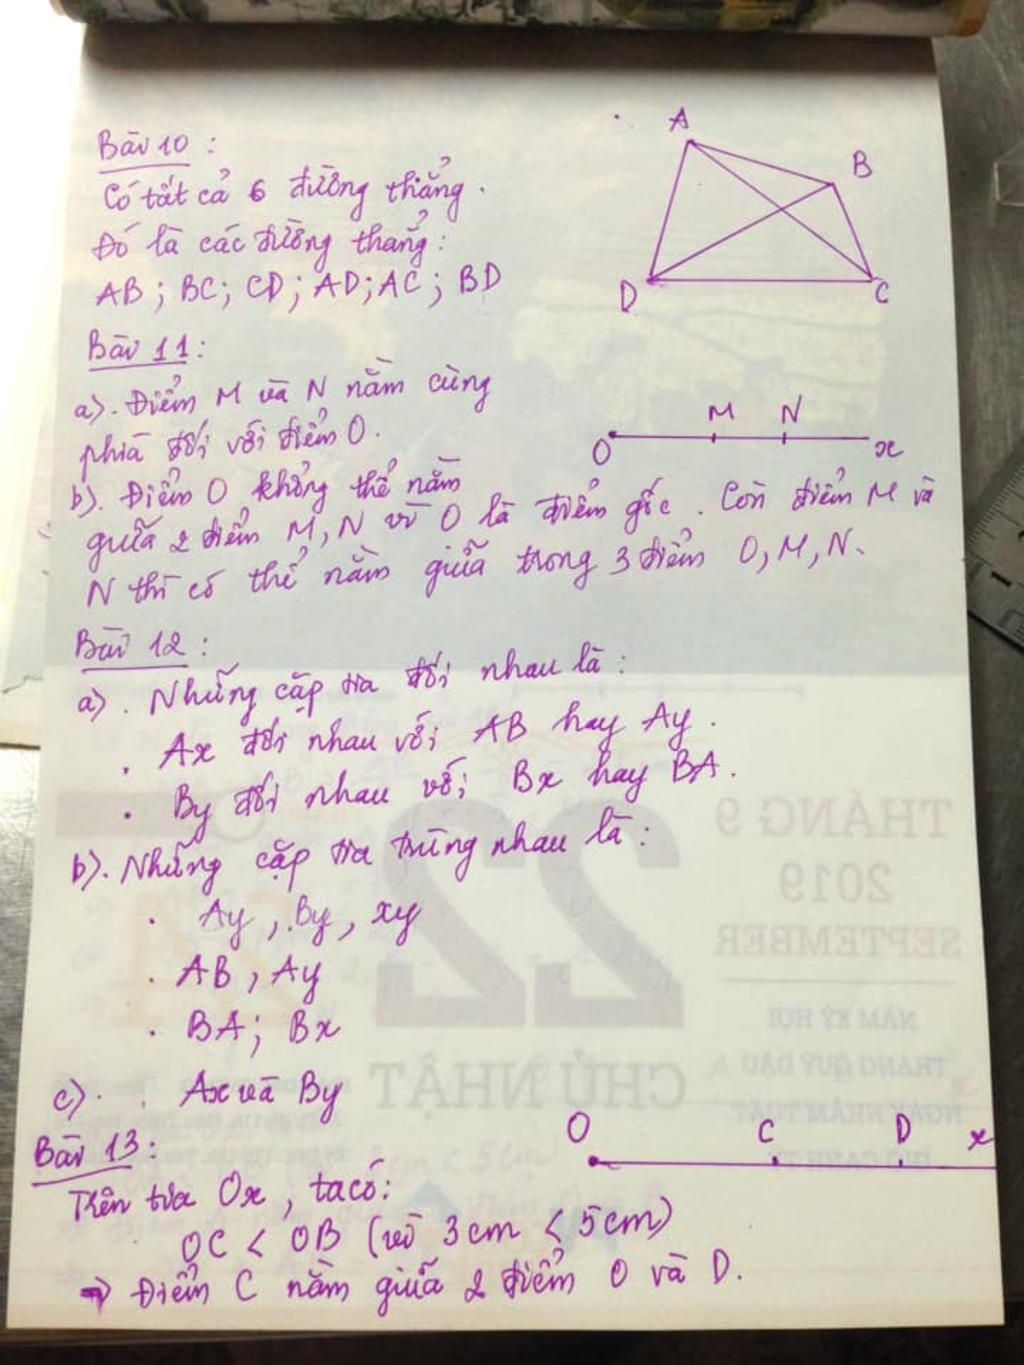 Bài 10 :
Có tất cả 6 đường thẳng.
Đó là các đường thẳng:
AB ; BC; CD; AD; AC; BD
A
B
D
C
Bài 11:
a). Điểm M và N nằm cùng
phía đối với điểm O.
M N
O x
b). Điểm O không thể nằm
giữa 2 điểm M, N vì O là điểm gốc. Còn điểm M và
N thì có thể nằm giữa trong 3 điểm O, M, N.
Bài 12 :
a). Những cặp tia đối nhau là :
. Ax đối nhau với AB hay Ay.
. By đối nhau với Bx hay BA.
b). Những cặp tia trùng nhau là :
. Ay, By, xy
. AB, Ay
. BA; Bx
c). . Ax và By
O C D x
Bài 13 :
Trên tia Ox, ta có:
OC < OB (vì 3cm < 5cm)
→ Điểm C nằm giữa 2 điểm O và D.
THÁNG 9
2019
SEPTEMBER
22
CHỦ NHẬT
NĂM KỶ HỢI
THÁNG QUÝ DẬU
NGÀY NHÂM TUẤT
1